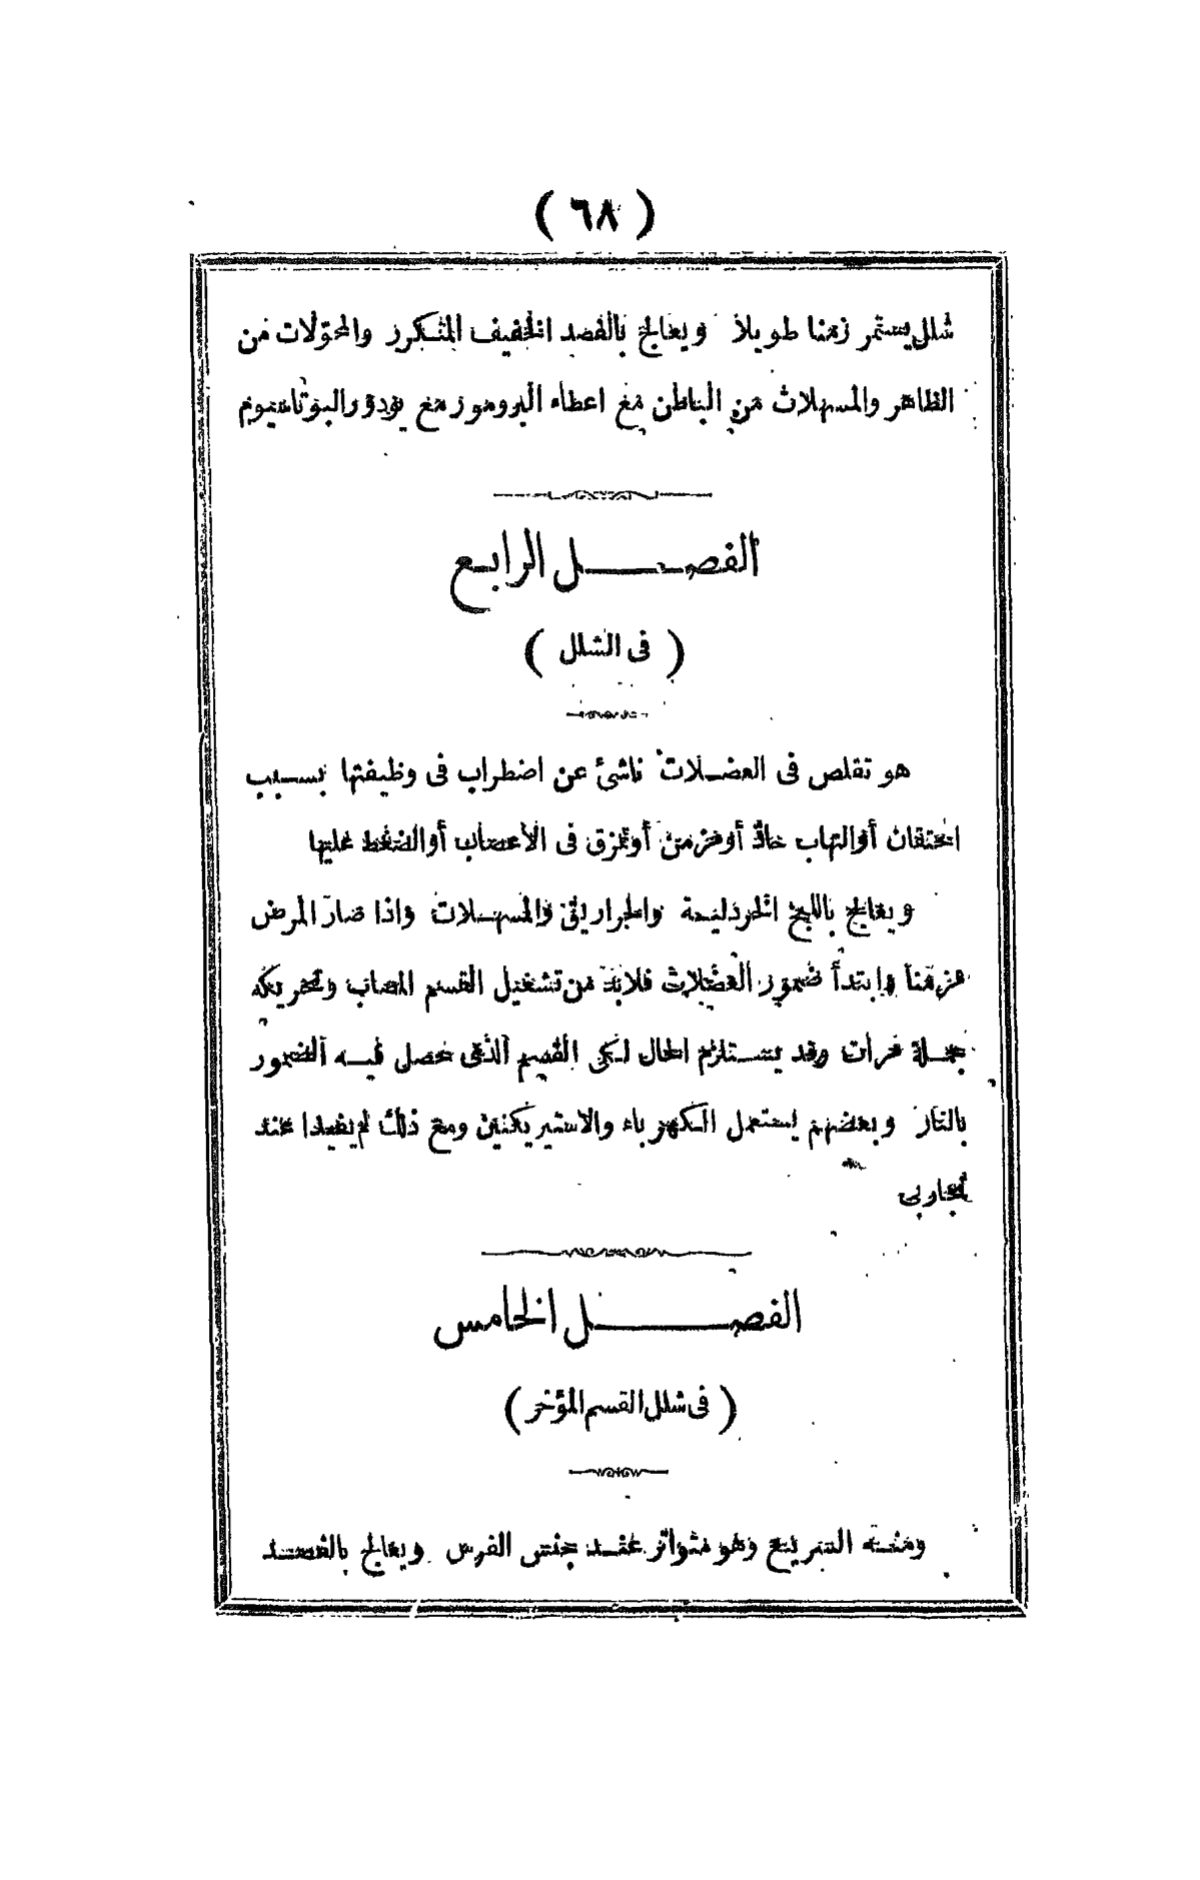 ( ٦٨ )
شلل يستمر زمنا طويلا ويعالج بالفصد الخفيف المتكرر والمحوّلات من
الظاهر والمسهلات من الباطن مع اعطاء البروموز مع يودور البوتاسيوم
الفصل الرابع
( فى الشلل )
هو تقلص فى العضلات ناشئ عن اضطراب فى وظيفتها بسبب
احتقان أوالتهاب حادّ أومزمن أوتمزق فى الأعصاب أوالضغط عليها
ويعالج باللبخ الخردلية والحراريق والمسهلات واذا صار المرض
مزمنا وابتدأ ضمور العضلات فلابدّ من تشغيل القسم المصاب وتحريكه
جملة مرات وقد يستلزم الحال لكى القسم الذى حصل فيه الضمور
بالنار وبعضهم يستعمل الكهرباء والاستيركنين ومع ذلك لم يفيدا عند
تجاربى
الفصل الخامس
( فى شلل القسم المؤخر )
ومنه السريع وهو متواتر عند جنس الفرس ويعالج بالفصد